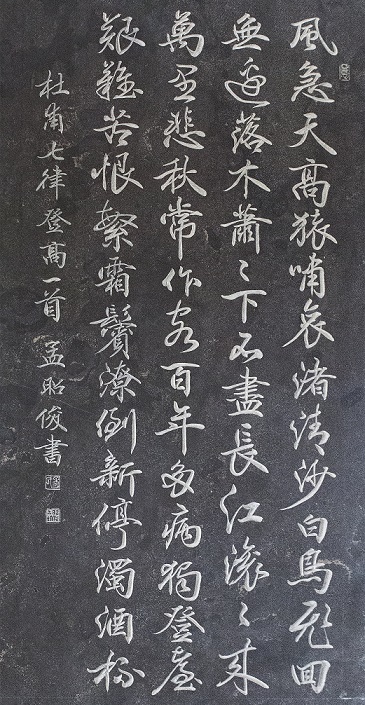 風急天高猿嘯哀渚清沙白鳥飛回
無邊落木蕭〻下不盡長江滚〻来
萬里悲秋常作客百年多病獨登臺
艱難苦恨繁霜鬢潦倒新停濁酒杯
杜甫七律登高一首 孟昭俊書